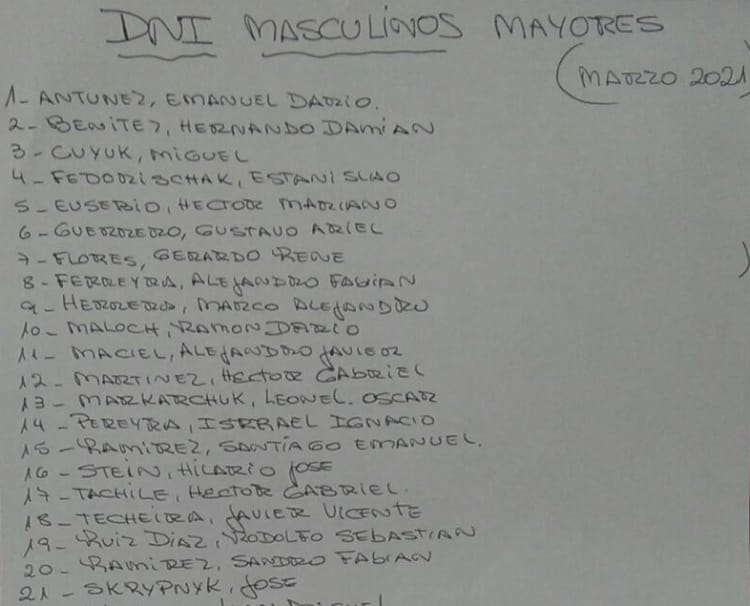 DNI MASCULINOS MAYORES
(MARZO 2021)
1- ANTUNEZ, EMANUEL DARIO.
2- BENITEZ, HERNANDO DAMIAN
3- CUYUK, MIGUEL
4- FEDORISCHAK, ESTANISLAO
5- EUSEBIO, HECTOR MARIANO
6- GUERRERO, GUSTAVO ARIEL
7- FLORES, GERARDO RENE
8- FERREYRA, ALEJANDRO FABIAN
9- HERRERA, MARCO ALEJANDRO
10- MALOCH, RAMON DARIO
11- MACIEL, ALEJANDRO JAVIER
12- MARTINEZ, HECTOR GABRIEL
13- MARKARCHUK, LEONEL. OSCAR
14- PEREYRA, ISRRAEL IGNACIO
15- RAMIREZ, SANTIAGO EMANUEL.
16- STEIN, HILARIO JOSE
17- TACHILE, HECTOR GABRIEL.
18- TECHEIRA, JAVIER VICENTE
19- RUIZ DIAZ, RODOLFO SEBASTIAN
20- RAMIREZ, SANDRO FABIAN
21- SKRYPNYK, JOSE